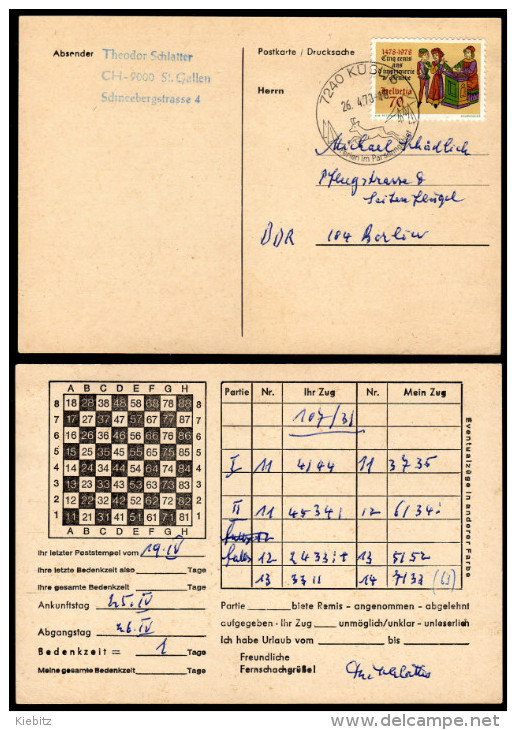 Absender
Theodor Schlatter
CH-9000 St. Gallen
Schneebergstrasse 4
Postkarte / Drucksache
Herrn
7240 KÜB
26. 4.78
Ferien im Parsenn
1478-1978
Cinq cents
ans
Helvetia 70
Michael Schädlich
Pflugstrasse 8
Seitenflügel
DDR 104 Berlin
A B C D E F G H
8 18 28 38 48 58 68 78 88 8
7 17 27 37 47 57 67 77 87 7
6 16 26 36 46 56 66 76 86 6
5 15 25 35 45 55 65 75 85 5
4 14 24 34 44 54 64 74 84 4
3 13 23 33 43 53 63 73 83 3
2 12 22 32 42 52 62 72 82 2
1 11 21 31 41 51 61 71 81 1
A B C D E F G H
Partie Nr. Ihr Zug Nr. Mein Zug
107/31
I 11 4144 11 3735
II 11 4534 12 6134
falls 12 2433 13 5152
13 3311 14 7133
Eventualzüge in anderer Farbe
Ihr letzter Poststempel vom 19.IV
Ihre letzte Bedenkzeit also Tage
Ihre gesamte Bedenkzeit Tage
Ankunftstag 25. IV
Abgangstag 26. IV
Bedenkzeit = 1 Tage
Meine gesamte Bedenkzeit Tage
Partie biete Remis - angenommen - abgelehnt
aufgegeben - Ihr Zug unmöglich/unklar - unleserlich
Ich habe Urlaub vom bis
Freundliche
Fernschachgrüße!
Kiebitz
delcampe.net